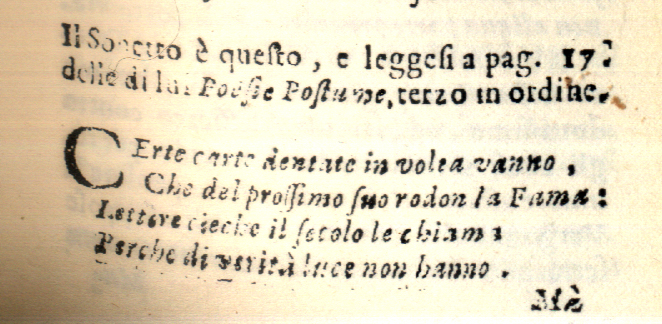 Il Sonetto è queſto, e leggeſi a pag. 17.
delle di lui Poeſie Poſtume, terzo in ordine.
CErte carte dentate in volta vanno,
Che del proſſimo ſuo rodon la Fama:
Lettere cieche il ſecolo le chiama
Perche di verità luce non hanno.
Mà